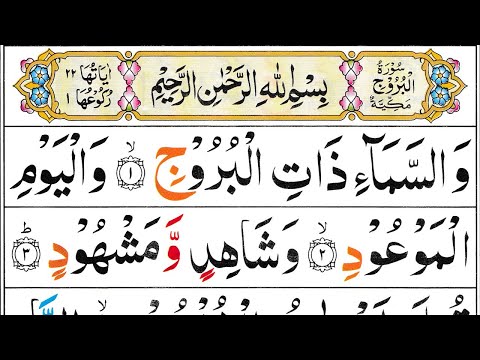 سُوْرَةُ الْبُرُوْجِ مَكِّيَّةٌ
بِسْمِ اللّٰهِ الرَّحْمٰنِ الرَّحِيْمِ
اٰيَاتُهَا ٢٢ رُكُوْعُهَا ١
وَالسَّمَآءِ ذَاتِ الْبُرُوْجِ ۙ﴿١﴾ وَالْيَوْمِ
الْمَوْعُوْدِ ۙ﴿٢﴾ وَشَاهِدٍ وَّمَشْهُوْدٍ ؕ﴿٣﴾